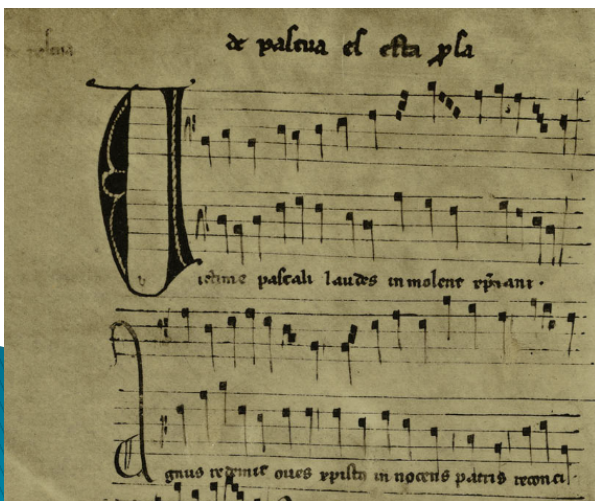 de pascua es esta psa
Victime pascali laudes in molent xpiani.
Agnus redemit oues xpistus in nocens patris reconci